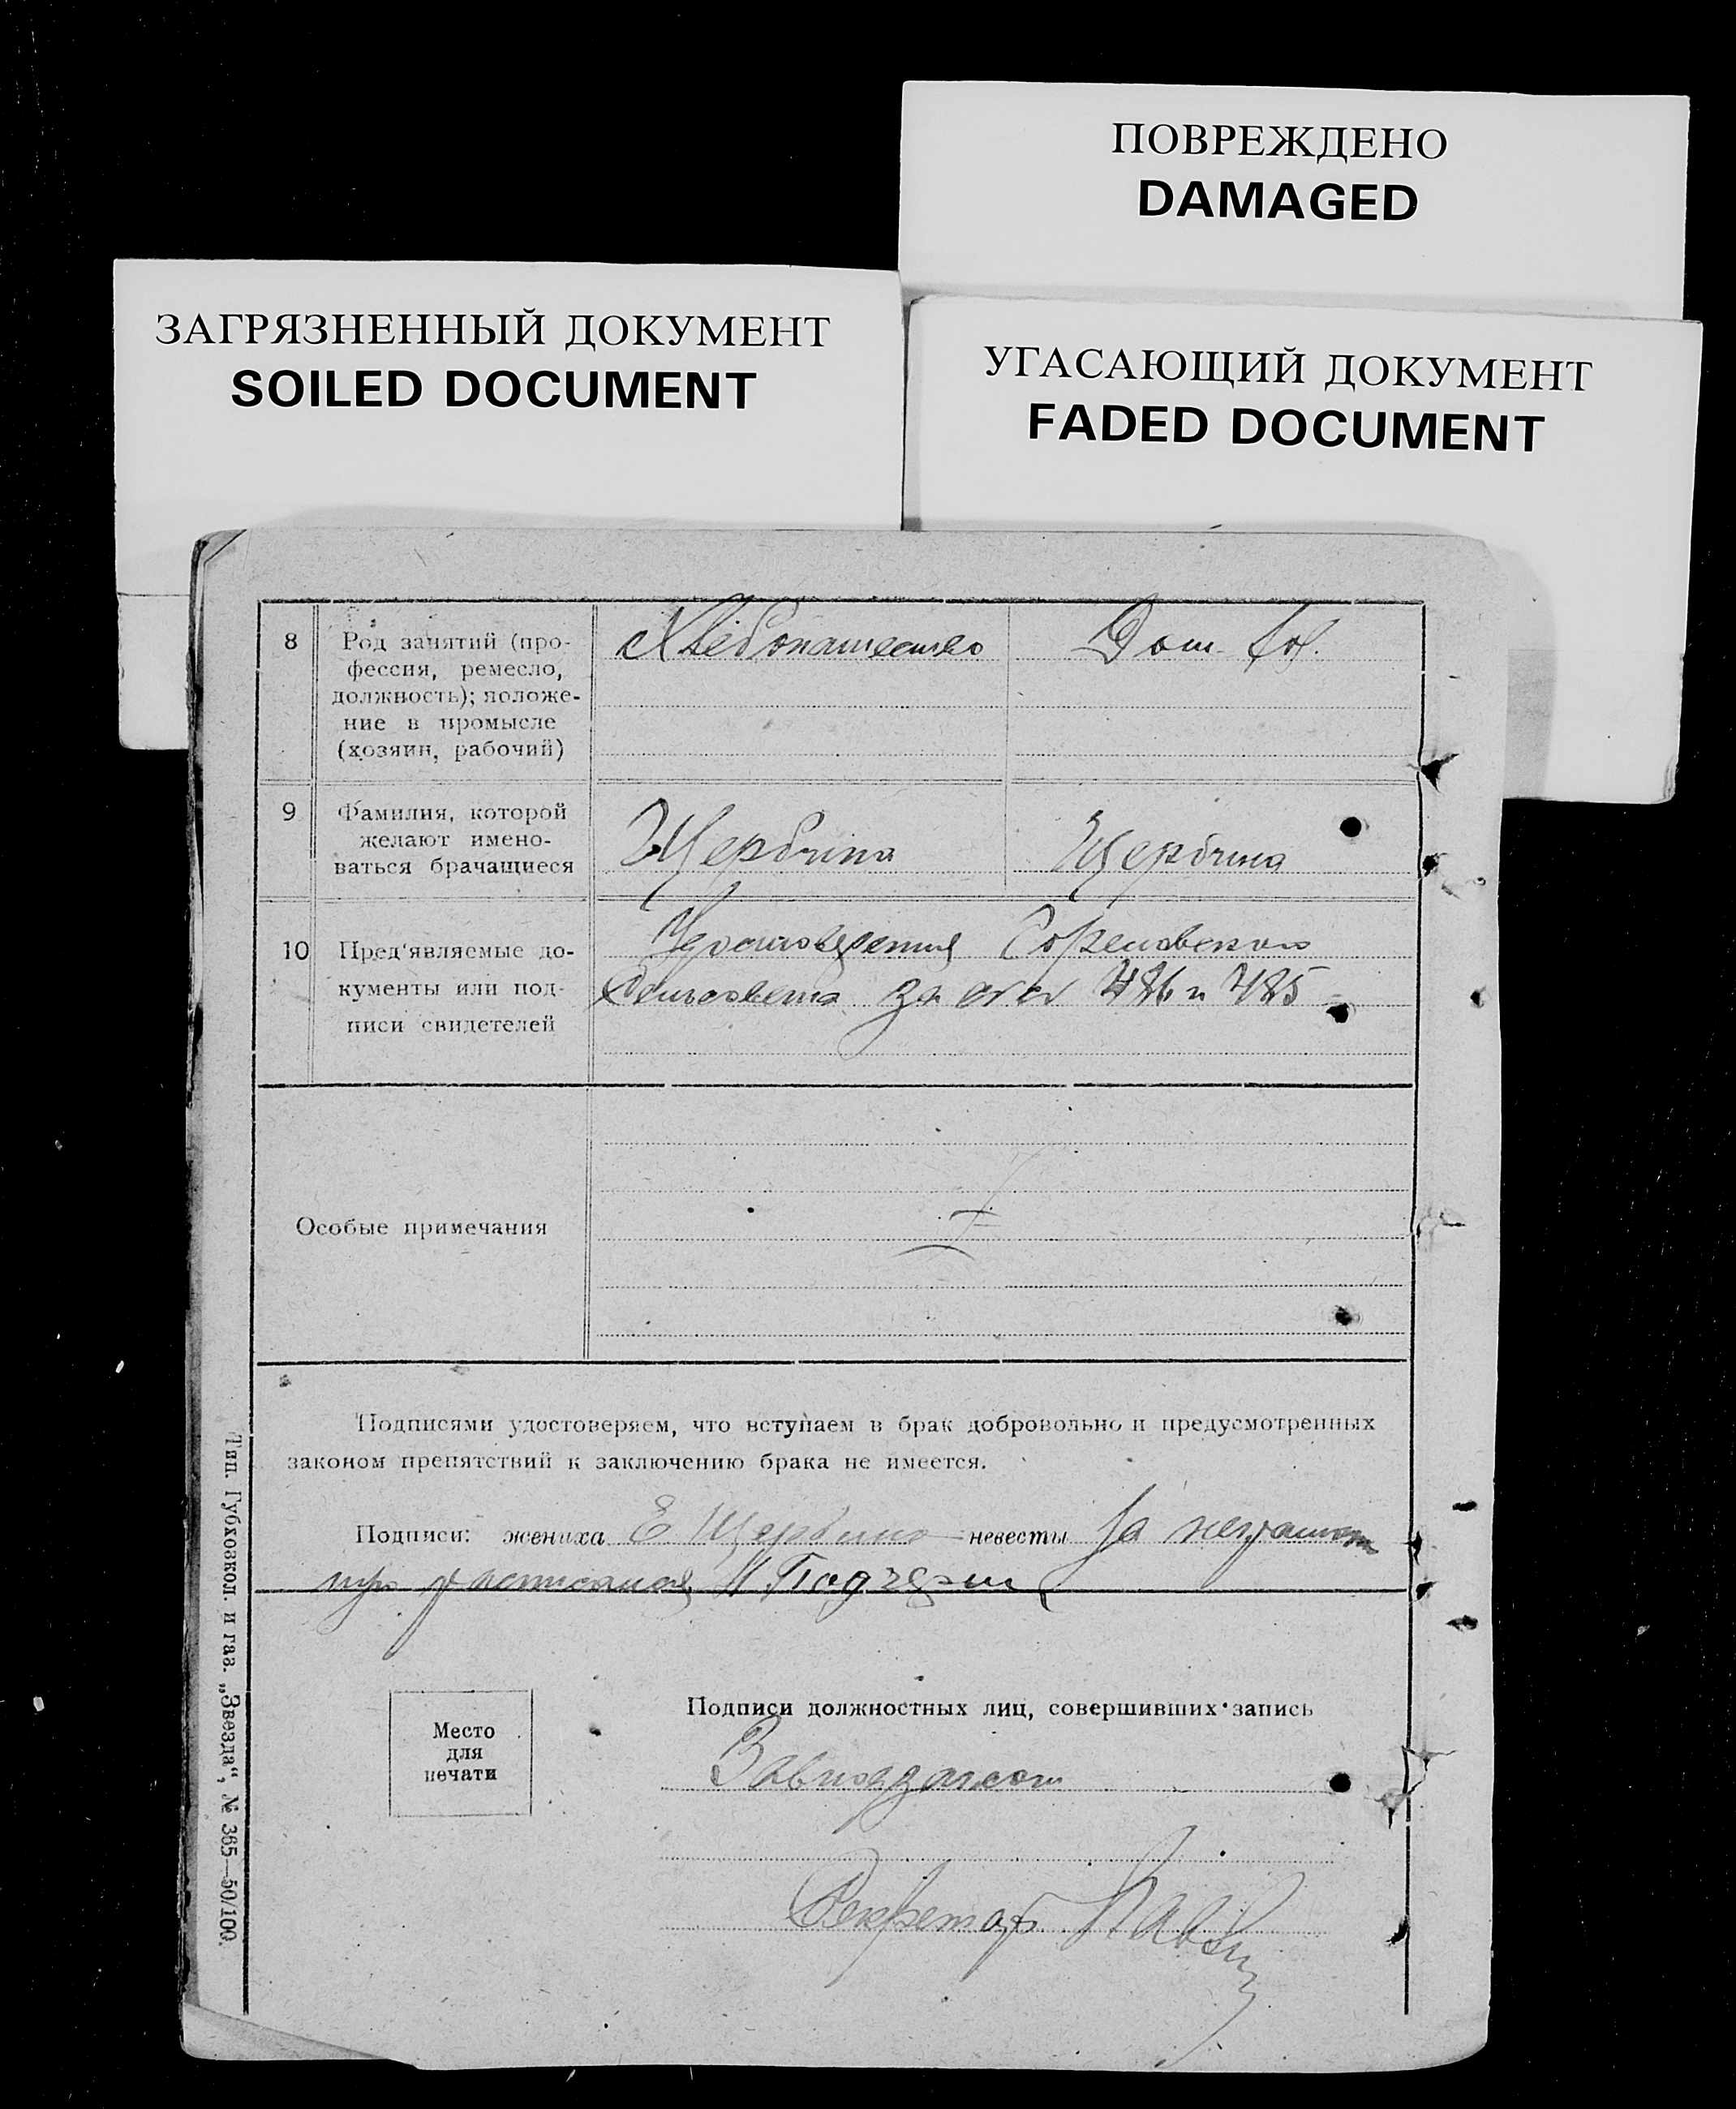 ПОВРЕЖДЕНО
DAMAGED
ЗАГРЯЗНЕННЫЙ ДОКУМЕНТ
SOILED DOCUMENT
УГАСАЮЩИЙ ДОКУМЕНТ
FADED DOCUMENT
8
Род занятий (про-
фессия, ремесло,
должность); положе-
ние в промысле
(хозяин, рабочий)
Хлебопашество
Дом. хоз.
9
Фамилия, которой
желают имено-
ваться брачащиеся
Щербина
Щербина
10
Пред'являемые до-
кументы или под-
писи свидетелей
Удостоверения
Сельсовета за № № 486 и 485
Особые примечания
Подписями удостоверяем, что вступаем в брак добровольно и предусмотренных
законом препятствий к заключению брака не имеется.
Подписи: жениха Е Щербина невесты За неграмотн
Место
для
печати
Подписи должностных лиц, совершивших запись
Завподзагсом
Секретарь
Тип. Губхозкол. и газ. „Звезда“, № 365—50/100.